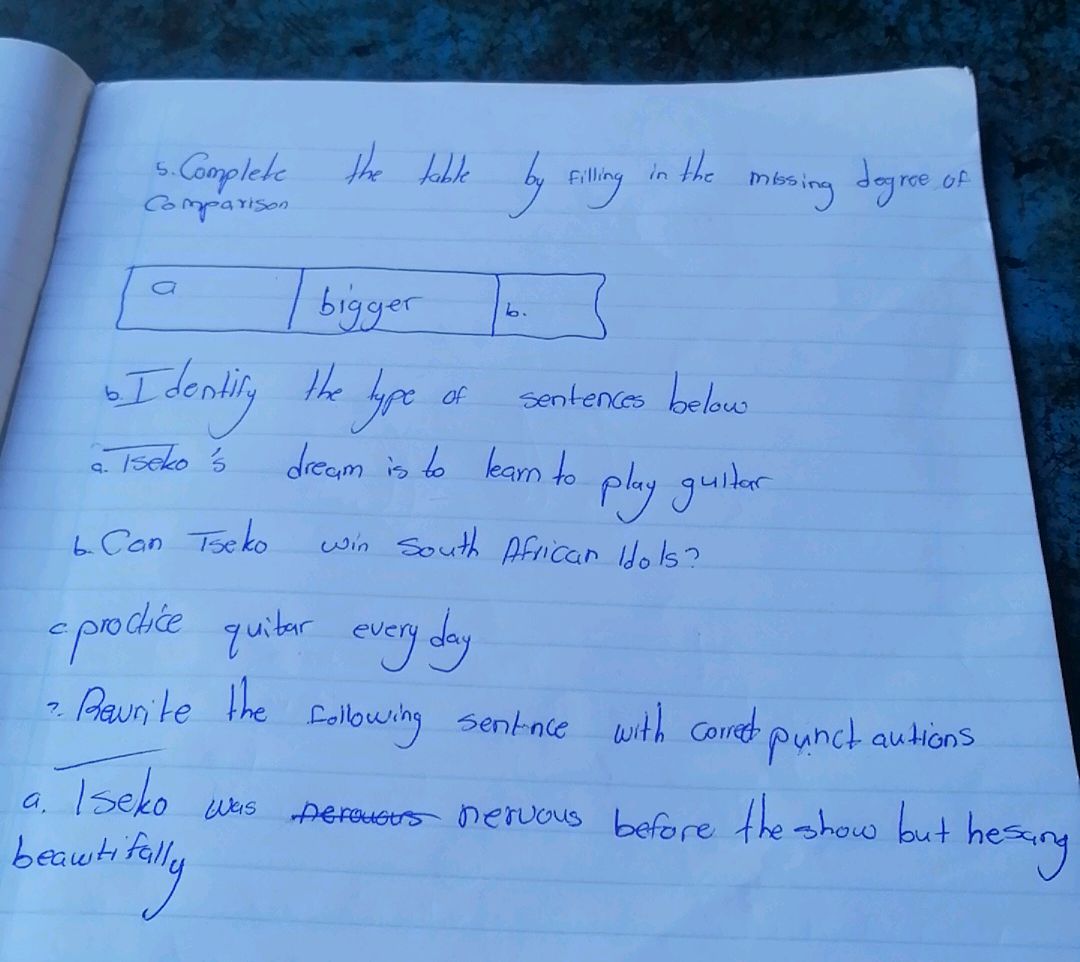 5. Complete the table by filling in the missing degree of
Comparison
a bigger b.
6. Identify the type of sentences below
a. Tseko's dream is to learn to play guitar
b. Can Tseko win South African Idols?
c. practice quitar every day
7. Rewrite the following sentence with corret punct autions
a. Tseko was nervous before the show but he sang
beawtifally